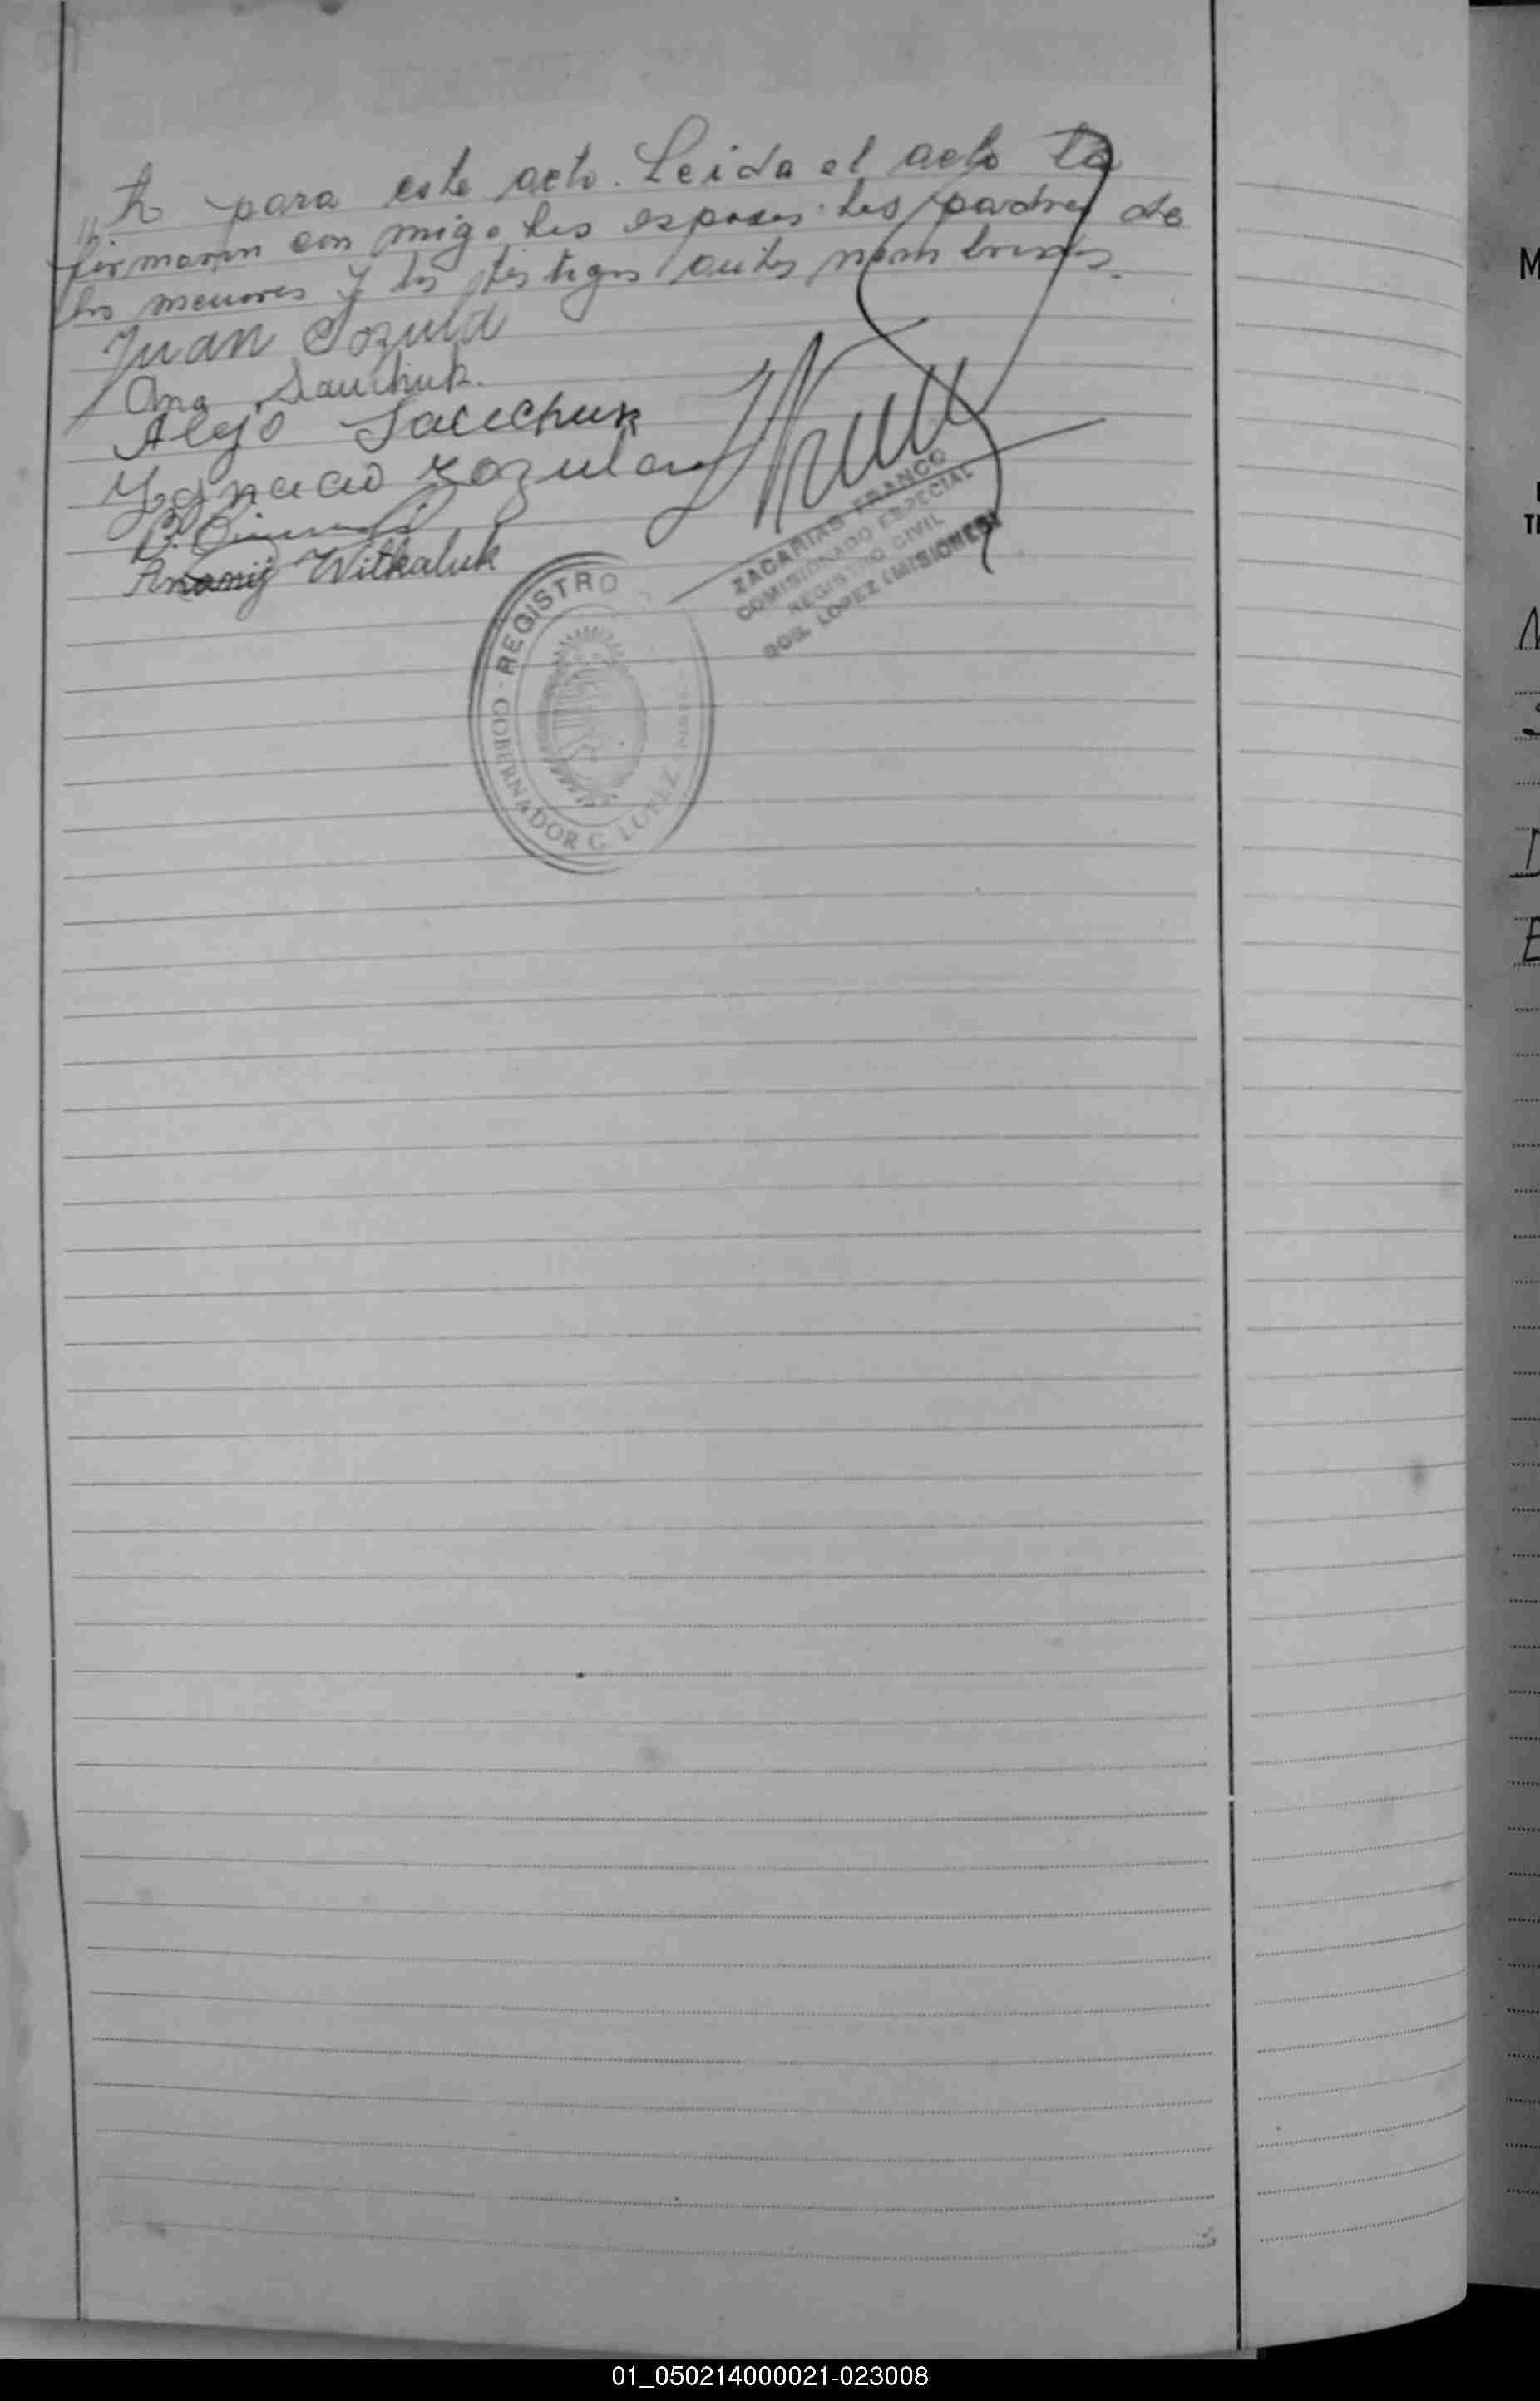 to para este acto. Leida el acto la
firmaron con migo los esposos los padres de
los menores y los testigos antes nombrados.
Juan Sozula
Ana Sauchuk.
Alejo Sacechuk
Ygnacio Zozula
Ananij Witkaluk
ZACARIAS FRANCO
COMISIONADO ESPECIAL
REGISTRO CIVIL
GOB. LOPEZ (MISIONES)
REGISTRO
GOBERNADOR G. LOPEZ
M
01_050214000021-023008